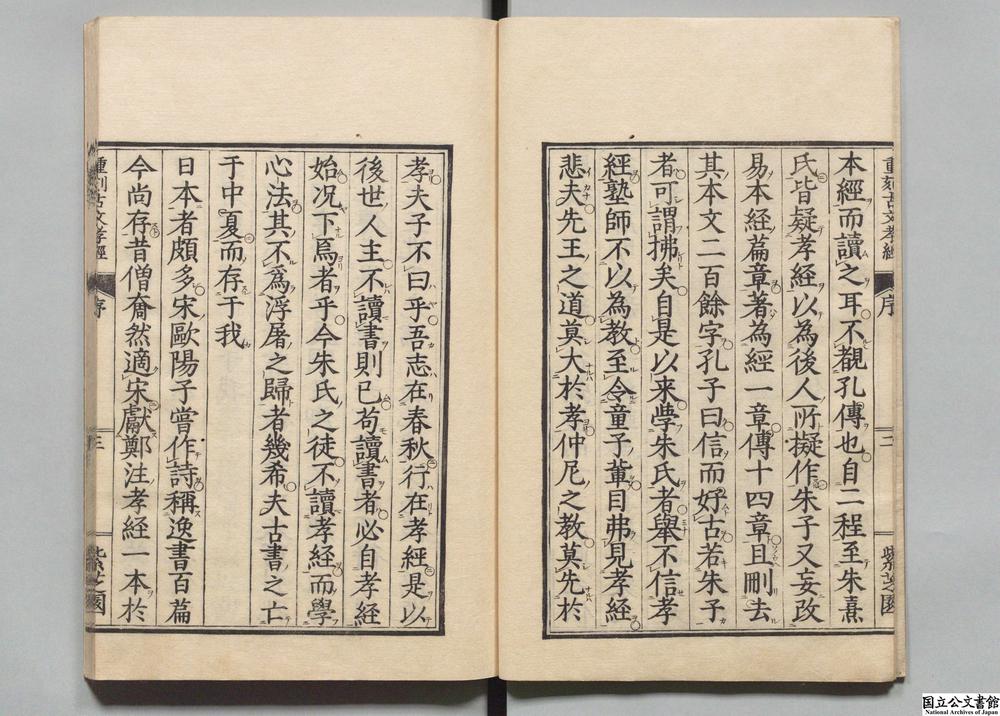 重刻古文孝經
序
三
紫芝園
本經而讀之耳不覩孔傳也自二程至朱熹
氏皆疑孝經以為後人所擬作朱子又妄改
易本經篇章著為經一章傳十四章且刪去
其本文二百餘字孔子曰信而好古若朱子
者可謂拂矣自是以来學朱氏者舉不信孝
經塾師不以為教至令童子輩目弗見孝經
悲夫先王之道莫大於孝仲尼之教莫先於
孝夫子不曰乎吾志在春秋行在孝經是以
後世人主不讀書則已苟讀書者必自孝經
始况下焉者乎今朱氏之徒不讀孝經而學
心法其不為浮屠之歸者幾希夫古書之亡
于中夏而存于我
日本者頗多宋歐陽子嘗作詩稱逸書百篇
今尚存昔僧奝然適宋獻鄭注孝經一本於
重刻古文孝經
序
三
紫芝園
国立公文書館
National Archives of Japan